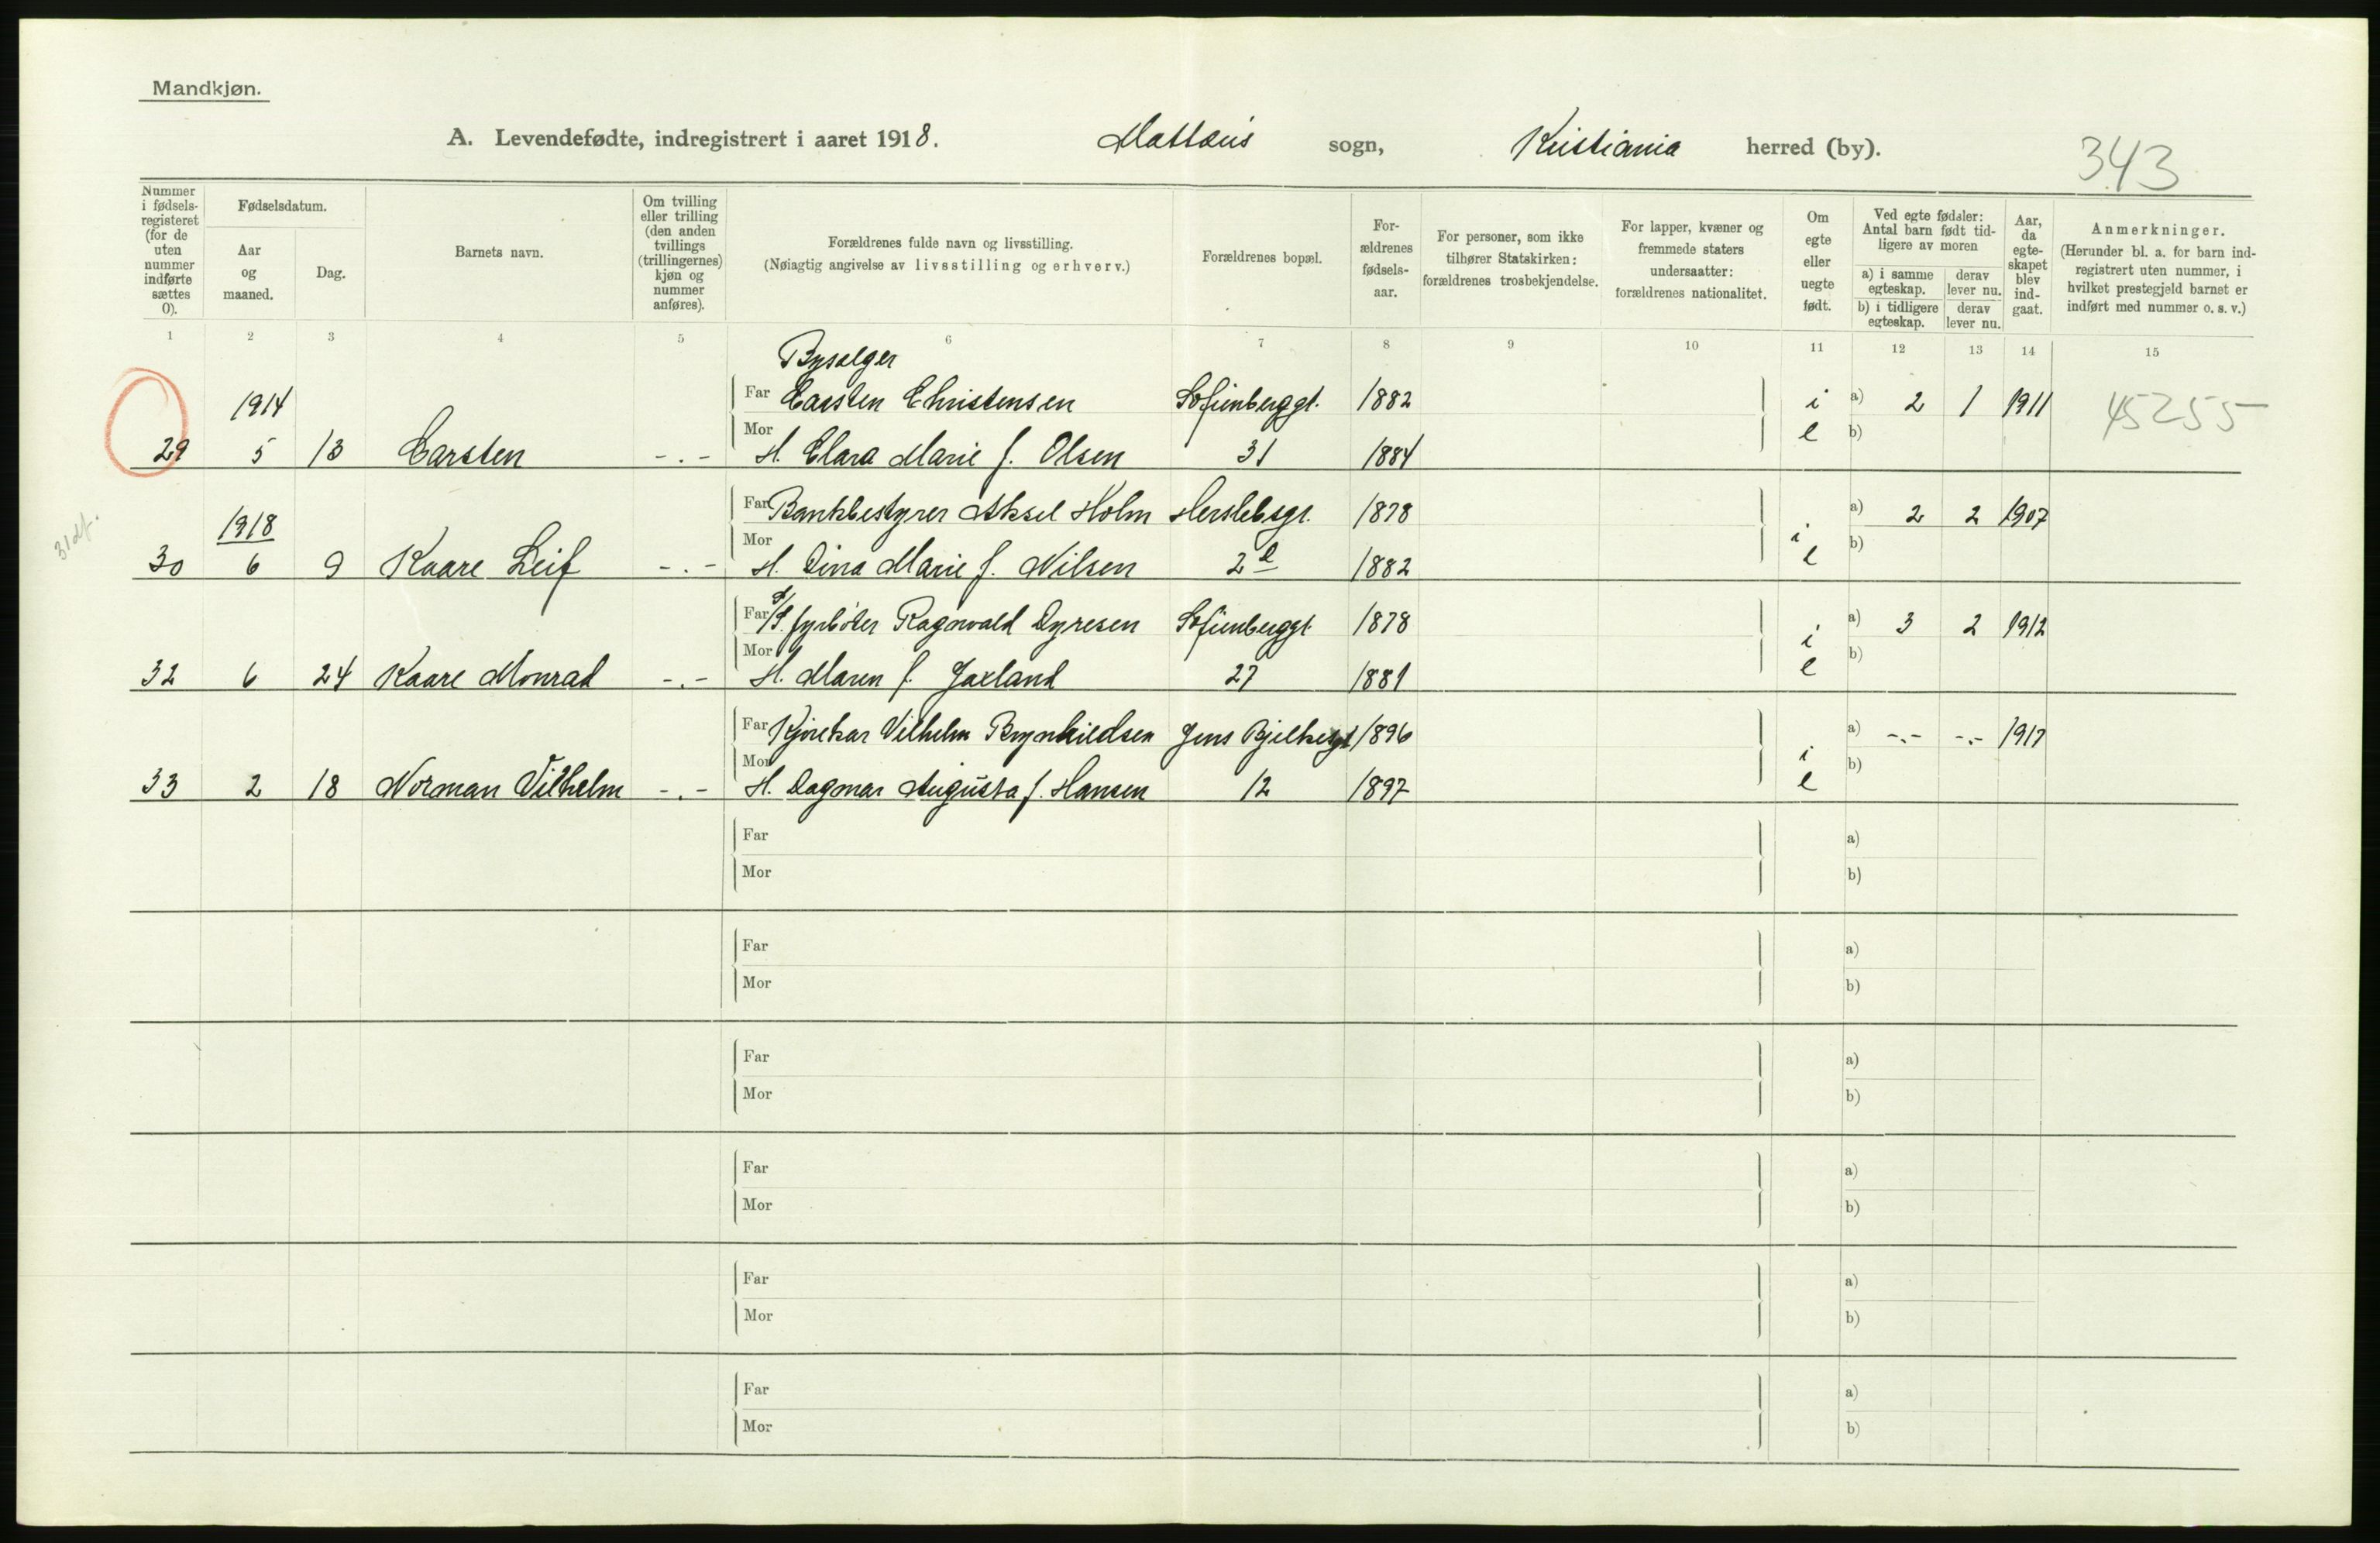 Mandkjøn.
A. Levendefødte, indregistrert i aaret 1918. Mattæus sogn, Kristiania herred (by).
343
Nummer i fødsels-registeret (for de uten nummer indførte sættes 0).
Fødselsdatum.
Aar og maaned.
Dag.
Barnets navn.
Om tvilling eller trilling (den anden tvillings (trillingernes) kjøn og nummer anføres).
Forældrenes fulde navn og livsstilling.
(Nøiagtig angivelse av livsstilling og erhverv.)
Forældrenes bopæl.
For-ældrenes fødsels-aar.
For personer, som ikke tilhører Statskirken: forældrenes trosbekjendelse.
For lapper, kvæner og fremmede staters undersaatter: forældrenes nationalitet.
Om egte eller uegte født.
Ved egte fødsler: Antal barn født tid-ligere av moren
a) i samme egteskap.
derav lever nu.
b) i tidligere egteskap.
derav lever nu.
Aar, da egte-skapet blev ind-gaat.
Anmerkninger.
(Herunder bl. a. for barn ind-registrert uten nummer, i hvilket prestegjeld barnet er indført med nummer o. s. v.)
1 2 3 4 5 6 7 8 9 10 11 12 13 14 15
Bysælger
1914 Far Carsten Christensen Sofienberggt. 1882 i a) 2 1 1911 45255
29 5 13 Carsten -.- Mor H. Clara Marie f. Olsen 31 1884 e b)
31 df.
1918 Far Bankbestyrer Aksel Holm Herslebsgt. 1878 i a) 2 2 1907
30 6 9 Kaare Leif -.- Mor H. Dina Marie f. Nilsen 2 1882 e b)
Far fyrbøter Ragnvald Dyresen Sofienberggt. 1878 i a) 3 2 1912
32 6 24 Kaare Monrad -.- Mor H. Maren f. Jaxland 27 1881 e b)
Far Kjørekar Vilhelm Brynhildsen Jens Bjelkesgt 1896 i a) -.- -.- 1917
33 2 18 Norman Vilhelm -.- Mor H. Dagmar Augusta f. Hansen 12 1897 e b)
Far a)
Mor b)
Far a)
Mor b)
Far a)
Mor b)
Far a)
Mor b)
Far a)
Mor b)
Far a)
Mor b)